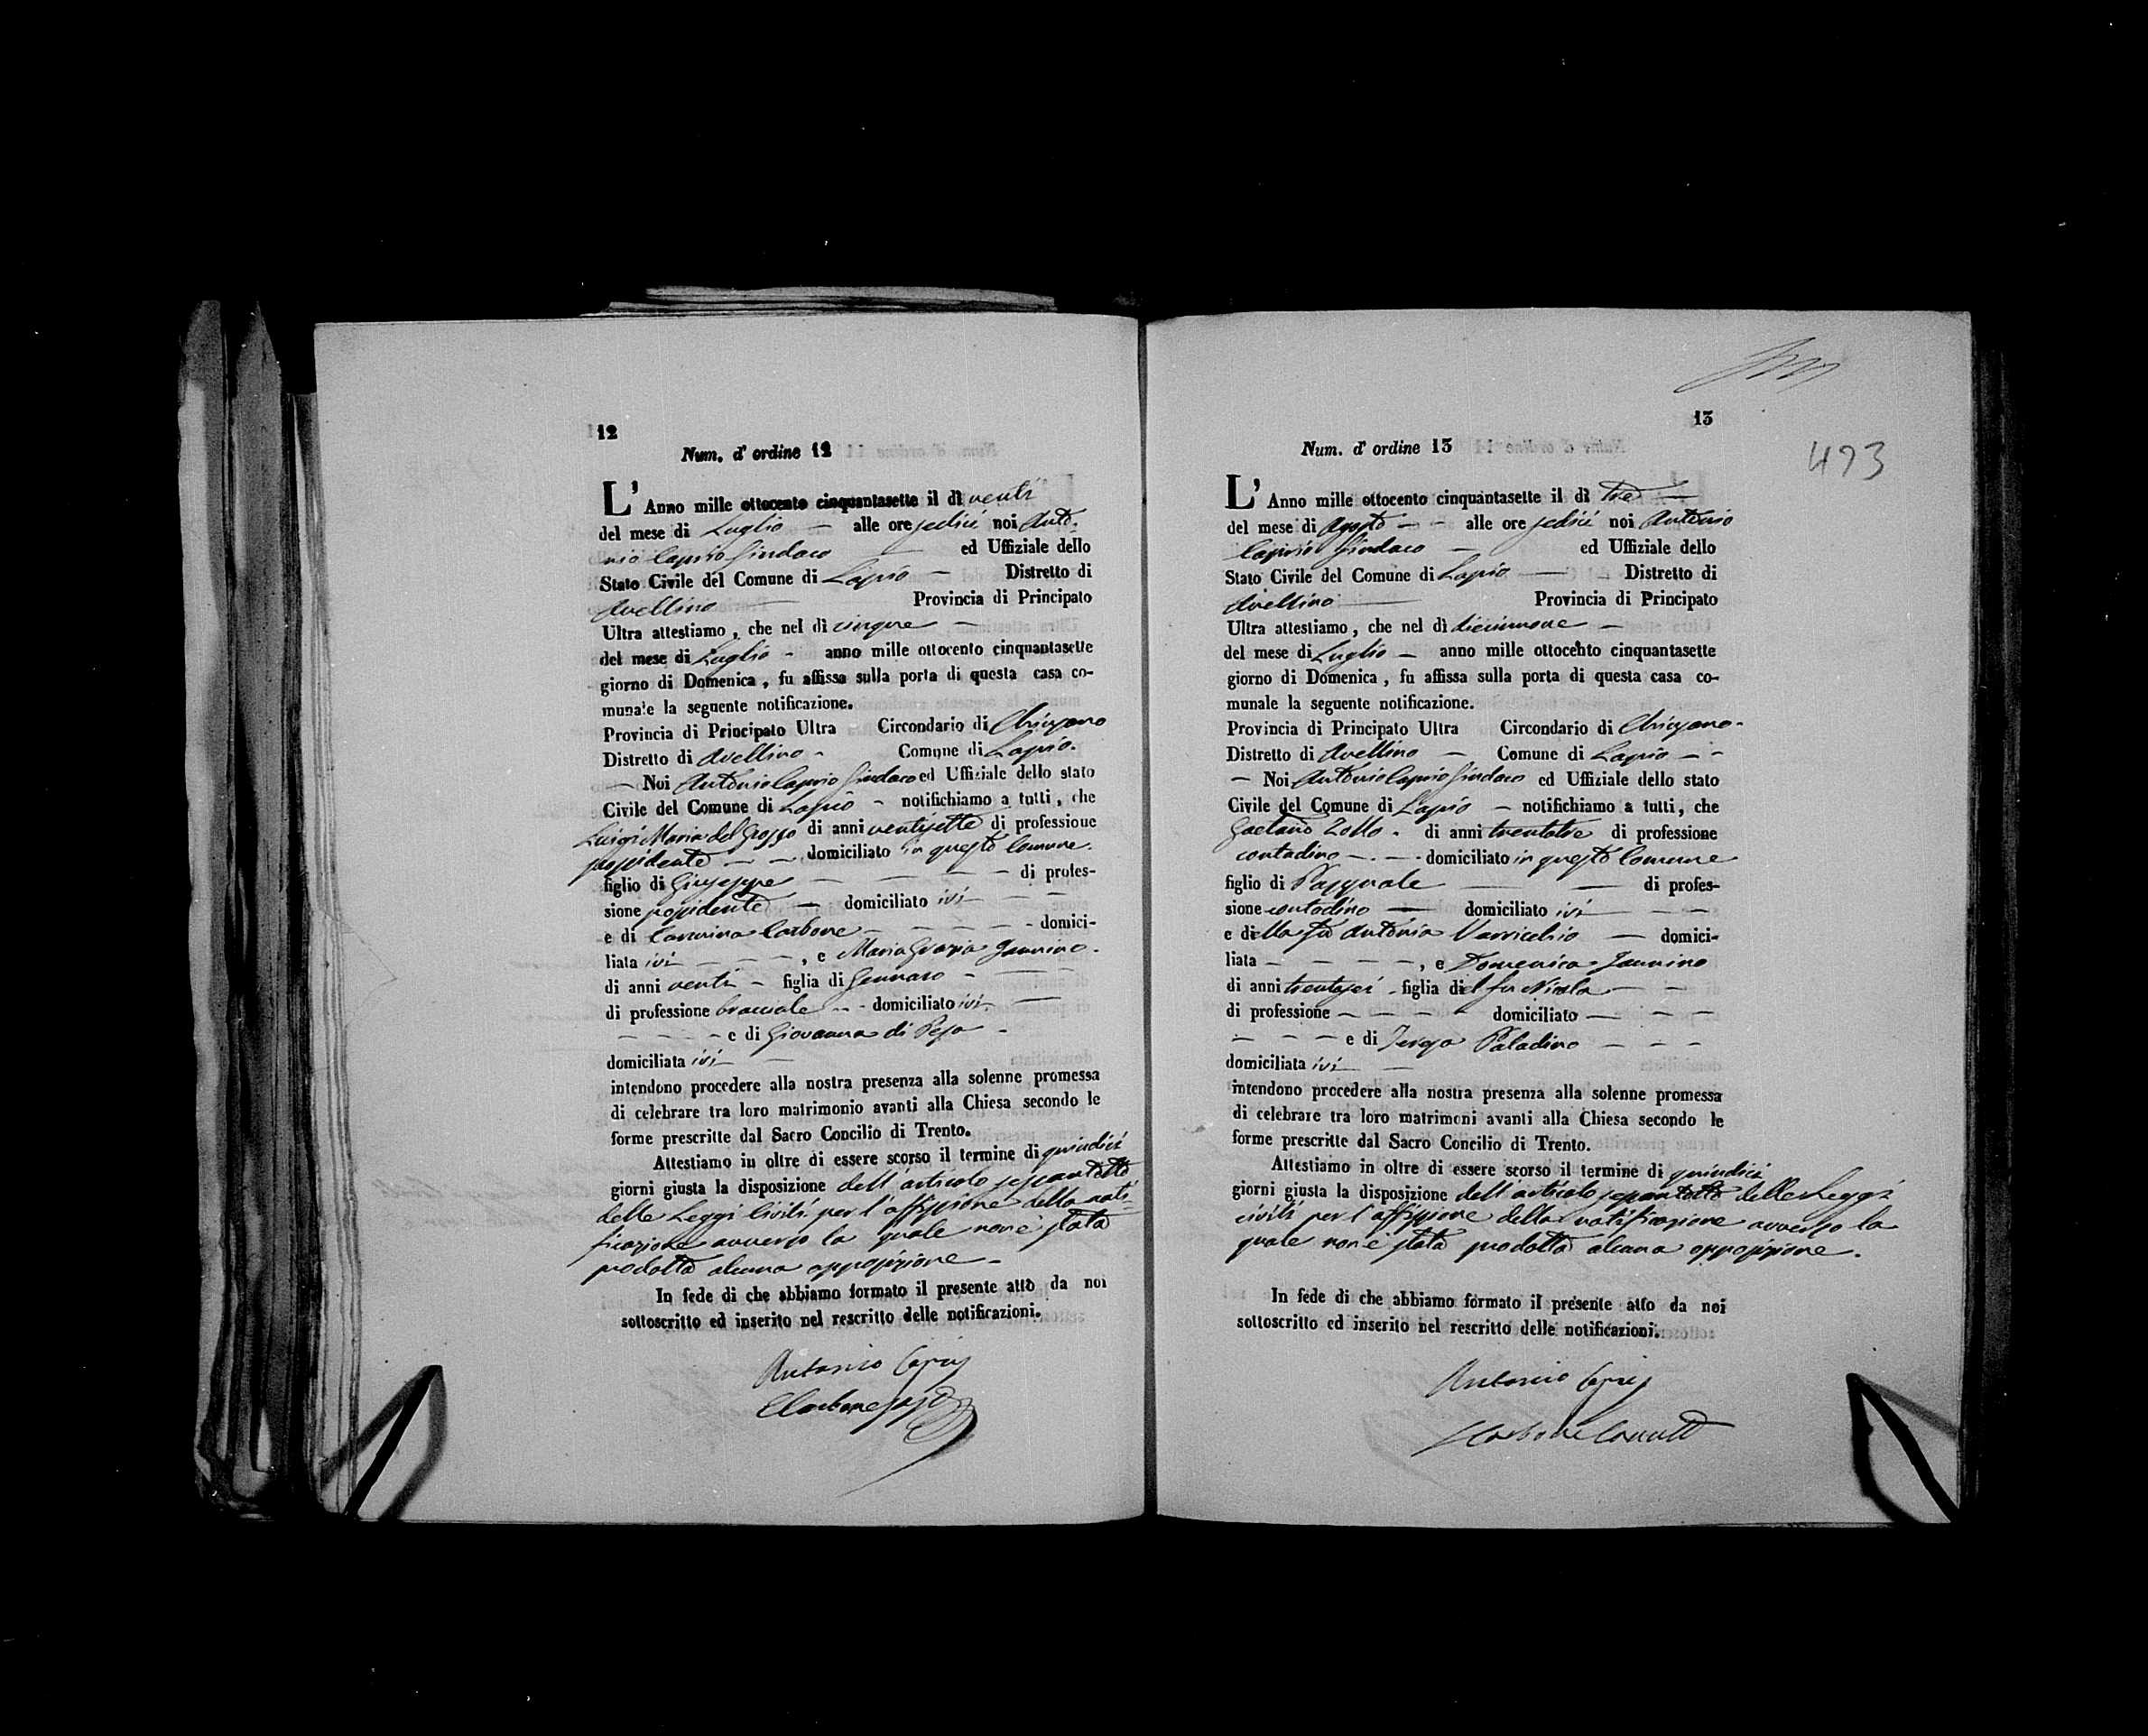 12
Num. d' ordine 12
L' Anno mille ottocento cinquantasette il dì venti
del mese di Luglio — alle ore sedici noi Anto-
nio Caprio Sindaco — ed Uffiziale dello
Stato Civile del Comune di Lapio — Distretto di
Avellino — Provincia di Principato
Ultra attestiamo, che nel dì cinque —
del mese di Luglio - anno mille ottocento cinquantasette
giorno di Domenica, fu affissa sulla porta di questa casa co-
munale la seguente notificazione.
Provincia di Principato Ultra Circondario di
Distretto di Avellino - Comune di Lapio.
— Noi Antonio Caprio Sindaco ed Uffiziale dello stato
Civile del Comune di Lapio - notifichiamo a tutti, che
Luigi Maria del Grosso di anni ventisette di professione
possidente — — domiciliato in questo Comune.
figlio di Giuseppe — — — — di profes-
sione possidente — domiciliato ivi — —
e di Carbone — — — - domici-
liata ivi — — —, e Maria Grazia Jannino -
di anni venti - figlia di Gennaro - — —
di professione bracciale - - domiciliato ivi —
— — — - e di Giovanna di Peso -
domiciliata ivi —
intendono procedere alla nostra presenza alla solenne promessa
di celebrare tra loro matrimonio avanti alla Chiesa secondo le
forme prescritte dal Sacro Concilio di Trento.
Attestiamo in oltre di essere scorso il termine di quindici
giorni giusta la disposizione dell'articolo sessantotto
delle Leggi Civili per l'affissione della noti-
ficazione avverso la quale non è stata
prodotta alcuna opposizione -
In fede di che abbiamo formato il presente atto da noi
sottoscritto ed inserito nel rescritto delle notificazioni.
Antonio Caprio
Carbone
13
493
Num. d' ordine 13
L' Anno mille ottocento cinquantasette il dì tre —
del mese di Agosto - - alle ore sedici noi Antonio
Caprio Sindaco — ed Uffiziale dello
Stato Civile del Comune di Lapio — Distretto di
Avellino — Provincia di Principato
Ultra attestiamo, che nel dì diecinnove —
del mese di Luglio — anno mille ottocento cinquantasette
giorno di Domenica, fu affissa sulla porta di questa casa co-
munale la seguente notificazione.
Provincia di Principato Ultra Circondario di
Distretto di Avellino — Comune di Lapio - -
— Noi Antonio Caprio Sindaco ed Uffiziale dello stato
Civile del Comune di Lapio — notifichiamo a tutti, che
Gaetano Zollo - di anni trentatre di professione
contadino - . - . domiciliato in questo Comune
figlio di Pasquale — — di profes-
sione contadino — domiciliato ivi — —
e della fu Antonia Varricchio — domici-
liata — — — —, e Domenica Jannino
di anni trentasei - figlia del fu Nicola — —
di professione — — — — domiciliato — — —
— — — e di Teresa Paladino — — —
domiciliata ivi —
intendono procedere alla nostra presenza alla solenne promessa
di celebrare tra loro matrimoni avanti alla Chiesa secondo le
forme prescritte dal Sacro Concilio di Trento.
Attestiamo in oltre di essere scorso il termine di quindici
giorni giusta la disposizione dell'articolo sessantotto delle Leggi
civili per l'affissione della notificazione avverso la
quale non è stata prodotta alcuna opposizione.
In fede di che abbiamo formato il presente atto da noi
sottoscritto ed inserito nel rescritto delle notificazioni.
Antonio Caprio
Carbone